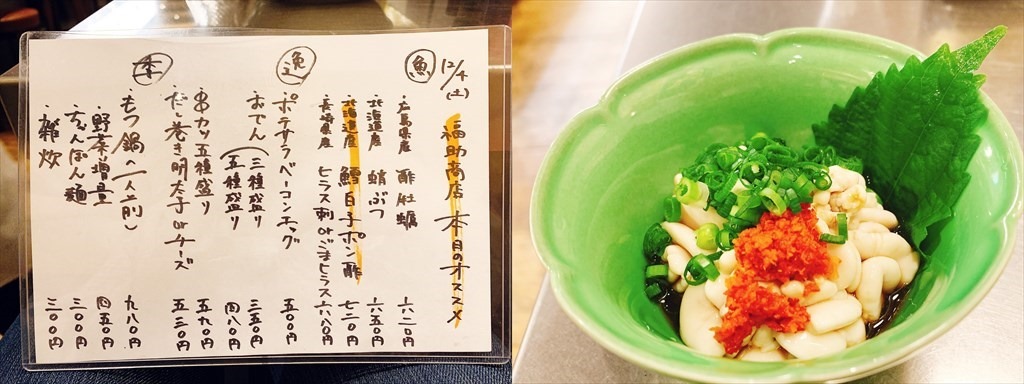 12/4(土)
福助商店 本月のオススメ
魚
広島県産 酢牡蠣 六二〇円
北海道産 蛸ぶつ 六五〇円
北海道産 鱈白子ポン酢 七二〇円
長崎県産 ヒラス刺orごまヒラス 六八〇円
逸
ポテサラベーコンエッグ 五〇〇円
おでん(三種盛り 三五〇円
五種盛り 四八〇円
串カツ五種盛り 五九〇円
だし巻き明太子orチーズ 五三〇円
もつ鍋(一人前) 九八〇円
野菜増量 四五〇円
ちゃんぽん麺 三〇〇円
雑炊 三〇〇円